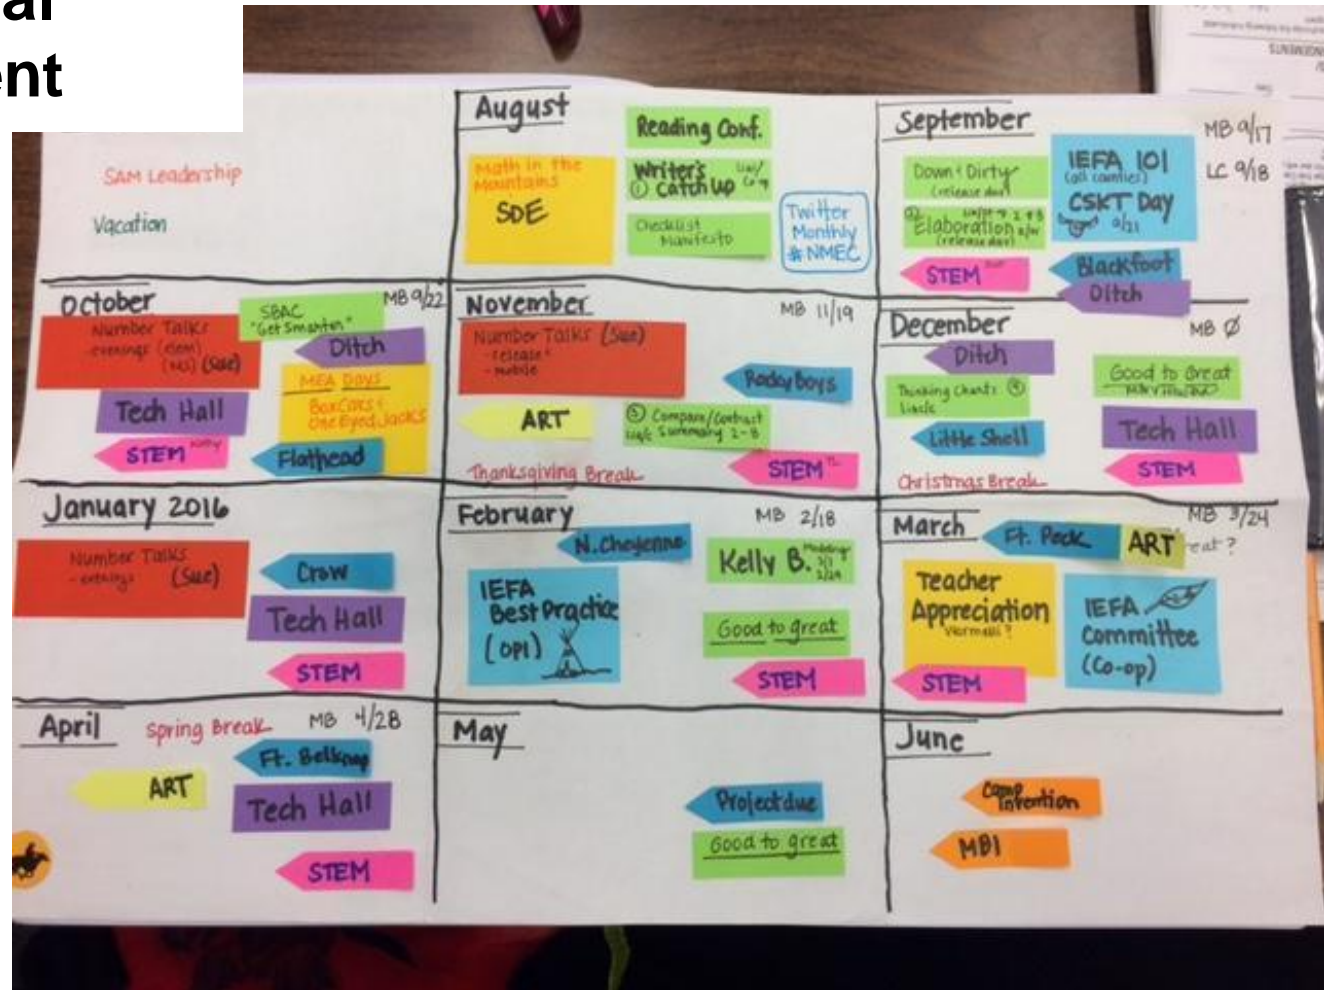 al
ent
SAM Leadership
Vacation
August
Reading Conf.
Math in the
Mountains
SDE
Writer's
① Catch up
Checklist
Manifesto
Twitter
Monthly
#NMEC
September
MB 9/17
LC 9/18
Down & Dirty
(release day)
Elaboration
(release day)
IEFA 101
(all counties)
CSKT Day
9/21
STEM
Blackfoot
Ditch
October
MB 9/22
SBAC
"Get Smarter"
Number Talks
- evenings (elem)
(Sue)
Ditch
MEA Days
BoxCars &
One Eyed Jacks
Tech Hall
STEM
Flathead
November
MB 11/19
Number Talks (Sue)
- release
- mobile
Rocky Boys
ART
③ Compare/Contrast
Summary 2-8
Thanksgiving Break
STEM
December
MB Ø
Ditch
Thinking Charts ④
Good to Great
Little Shell
Tech Hall
STEM
Christmas Break
January 2016
Number Talks
- evenings (Sue)
Crow
Tech Hall
STEM
February
MB 2/18
N. Cheyenne
Kelly B.
IEFA
Best Practice
(OPI)
Good to great
STEM
March
MB 3/24
Ft. Peck
ART
eat?
Teacher
Appreciation
IEFA
Committee
(Co-op)
STEM
April
Spring Break
MB 4/28
Ft. Belknap
ART
Tech Hall
STEM
May
Project due
Good to great
June
Camp
Invention
MBI